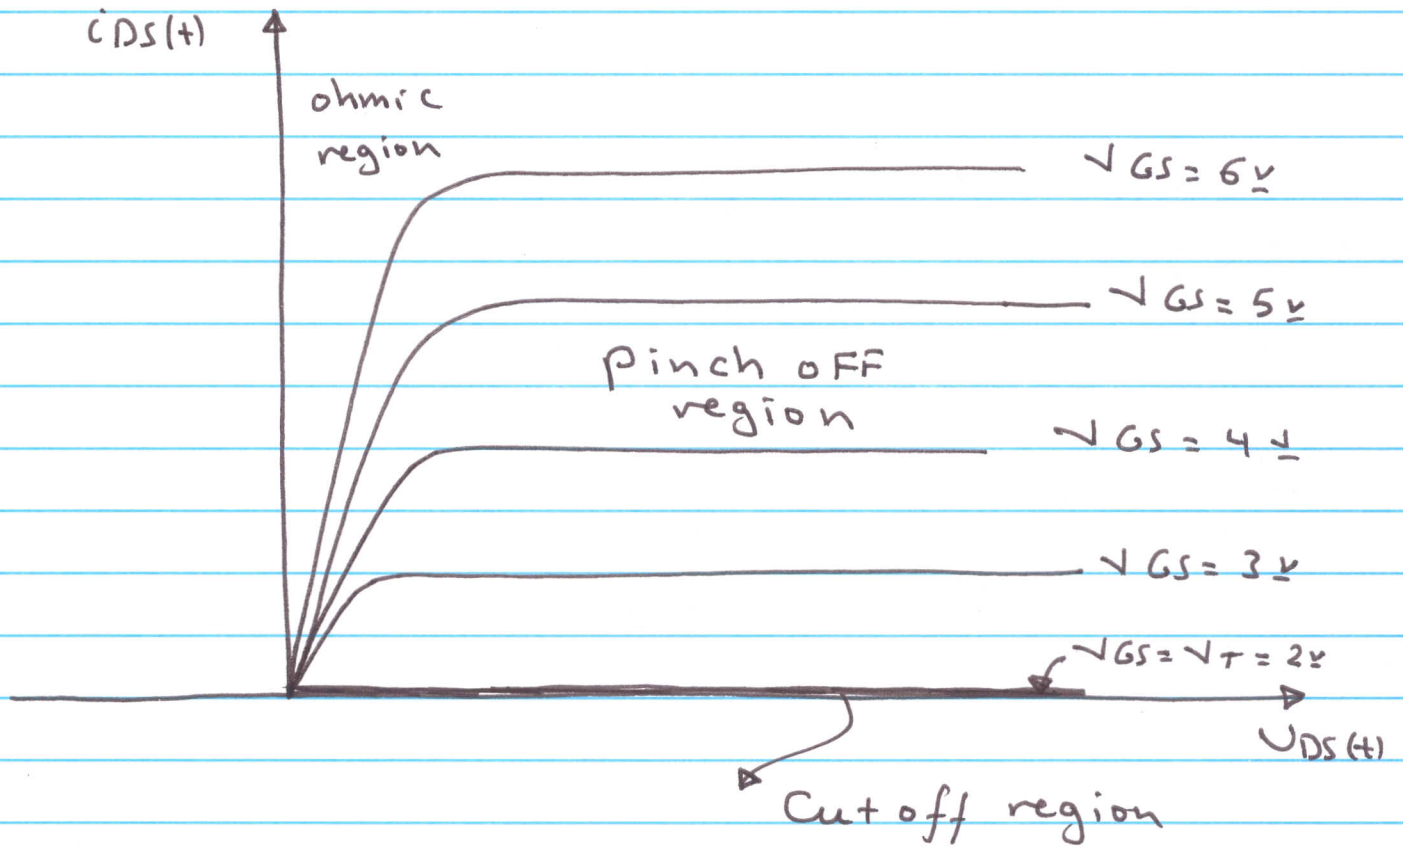 iDS(t)
ohmic
region
VGS = 6v
VGS = 5v
Pinch oFF
region
VGS = 4v
VGS = 3v
VGS = VT = 2v
VDS(t)
Cutoff region